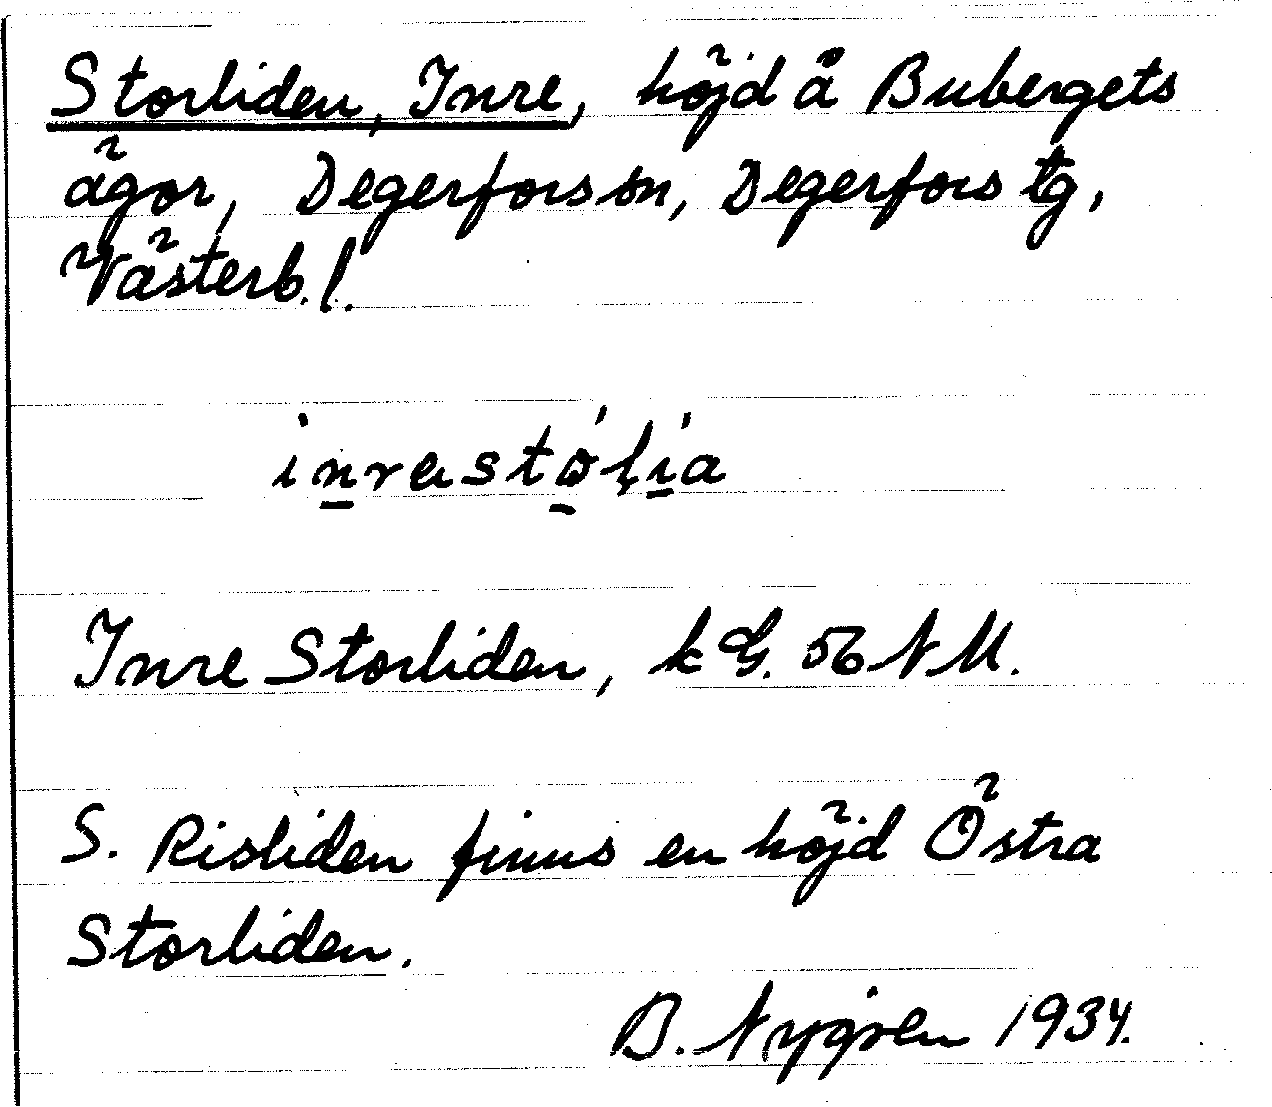 Storliden, Inre, höjd å Bubergets
ägor, Degerfors sn, Degerfors tg,
Västerb. l.
Inre Storliden, k G. 56 NM.
S. Risliden finns en höjd Östra
Storliden.
B. Nygren 1934.